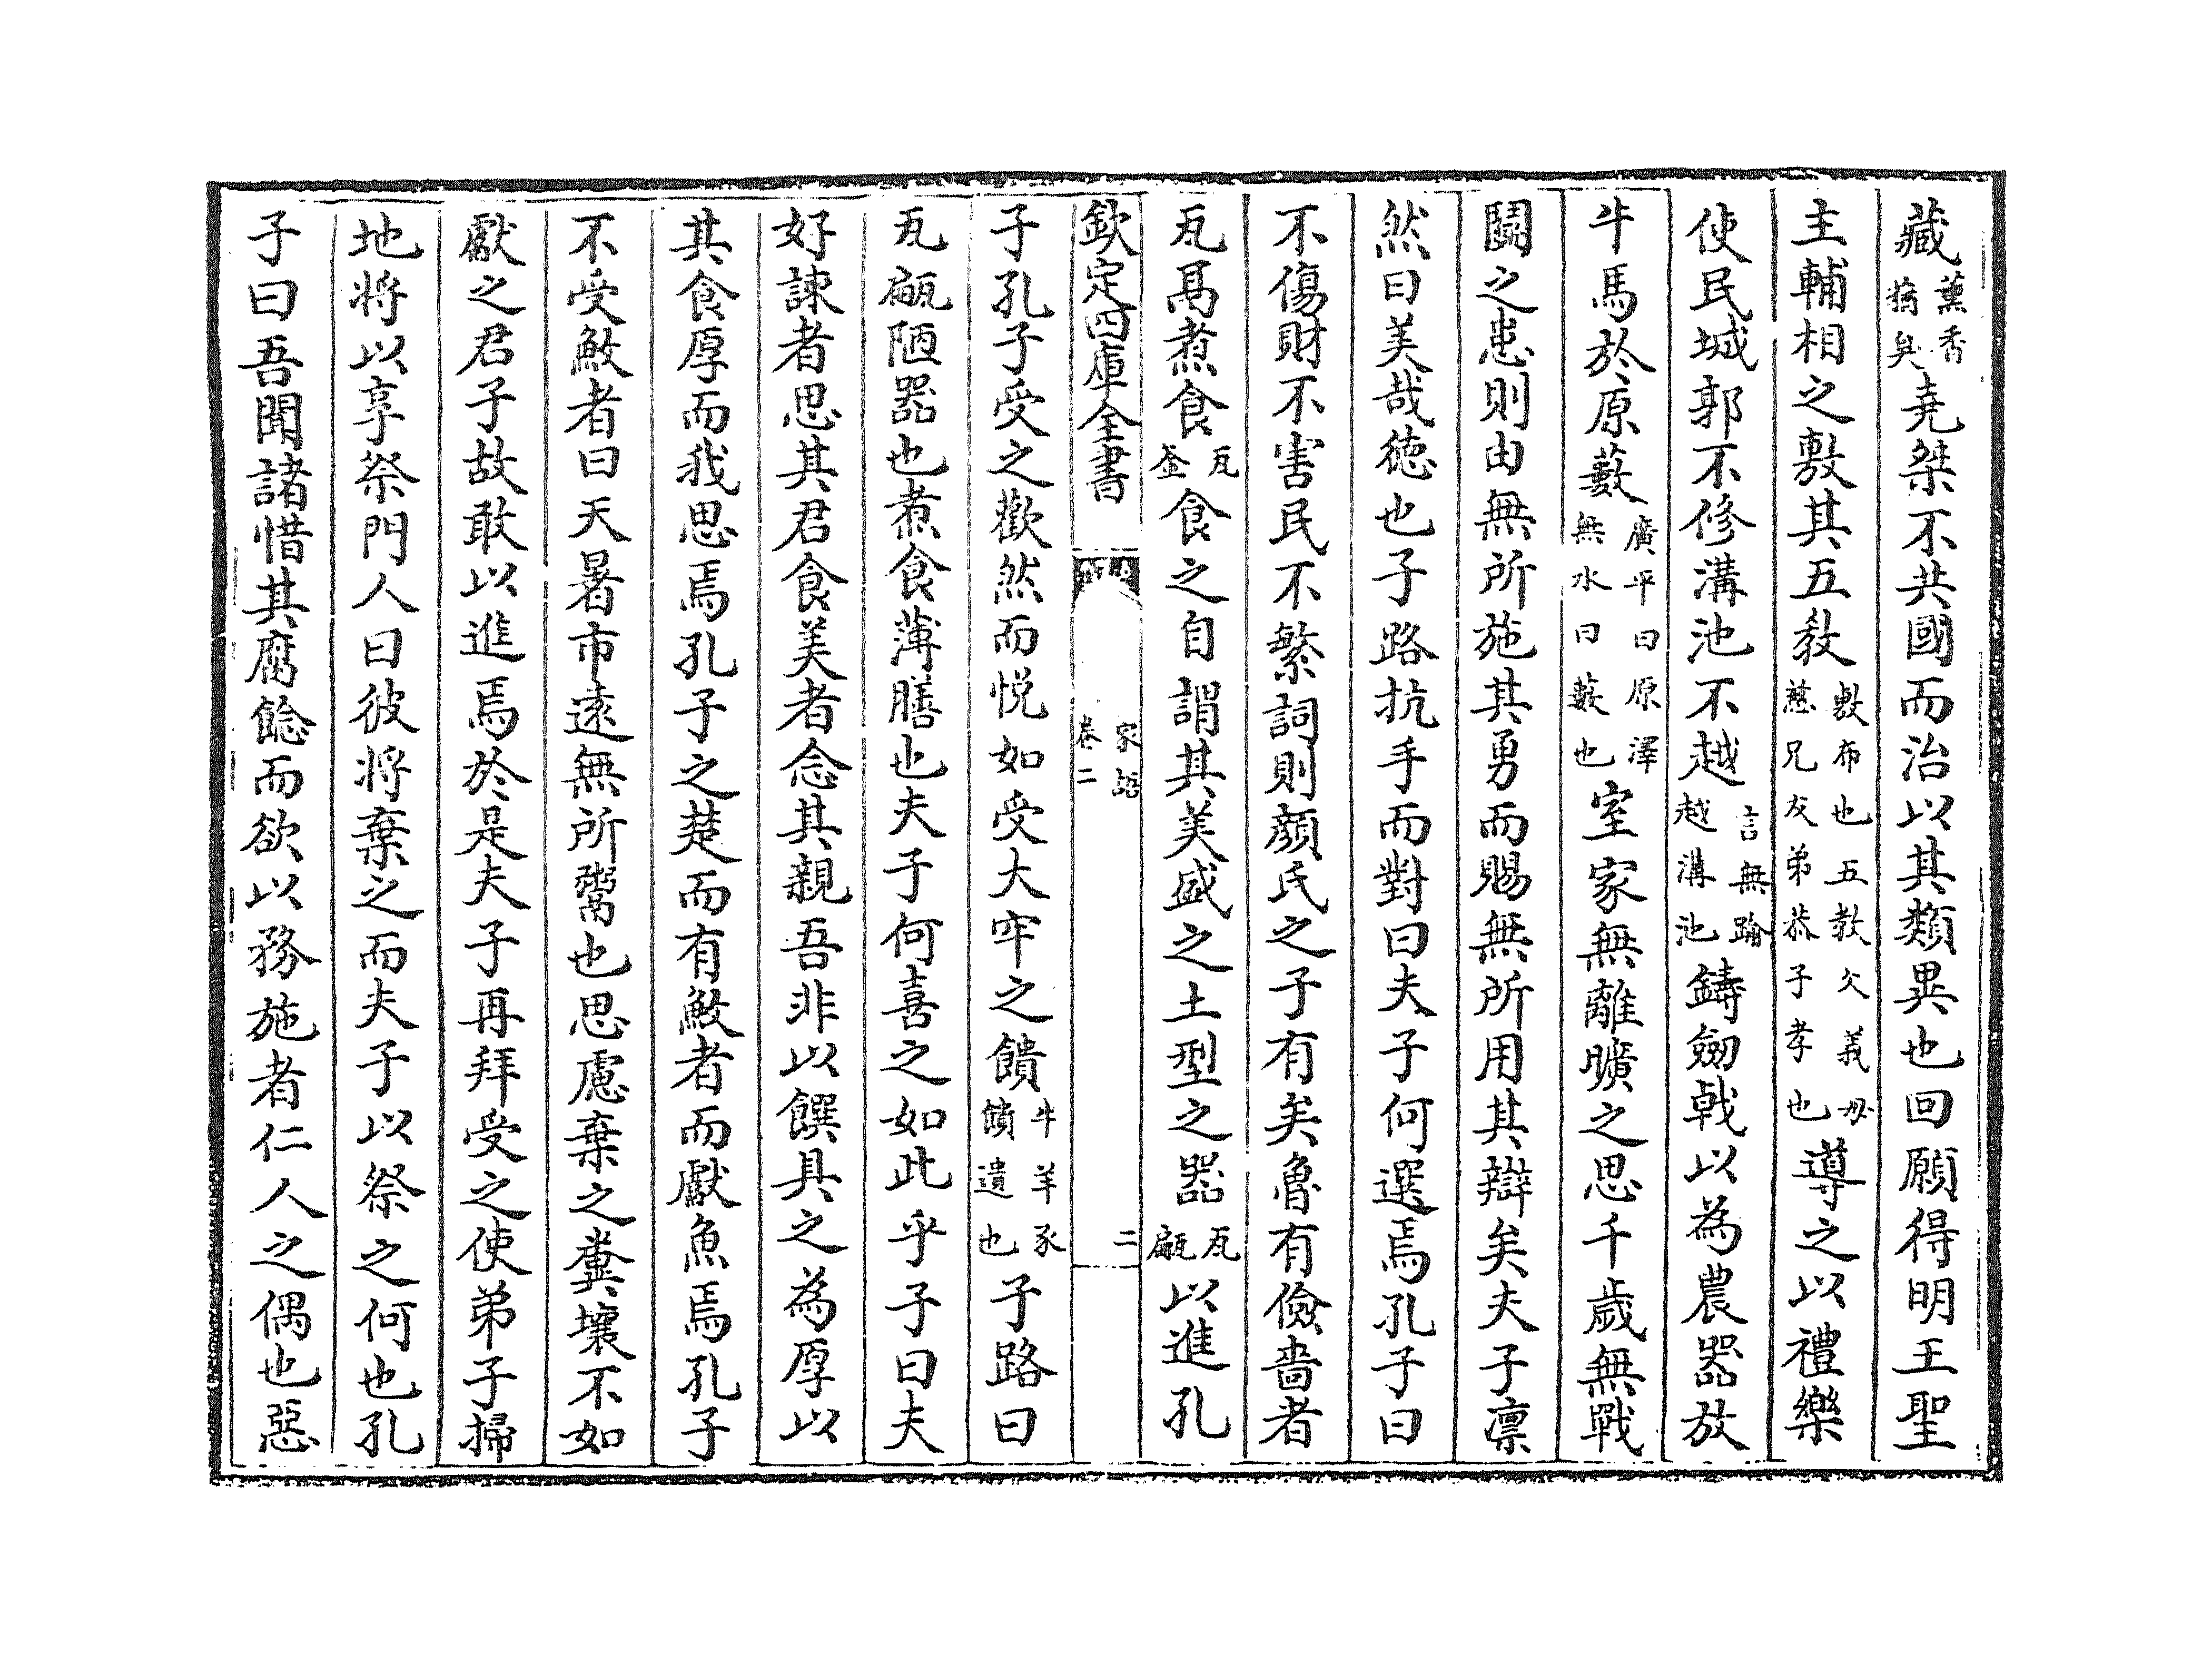 藏薰香蕕臭堯桀不共國而治以其類異也回願得明王聖
主輔相之敷其五教敷布也五教父義母慈兄友弟恭子孝也導之以禮樂
使民城郭不修溝池不越言無踰越溝池鑄劒戟以為農器放
牛馬於原藪廣平曰原澤無水曰藪也室家無離曠之思千歲無戰
鬭之患則由無所施其勇而賜無所用其辯矣夫子凛
然曰美哉徳也子路抗手而對曰夫子何選焉孔子曰
不傷財不害民不繁詞則顔氏之子有矣魯有儉嗇者
瓦鬲煮食瓦釡食之自謂其美盛之土型之器瓦甂以進孔
欽定四庫全書
家語
卷二
二
子孔子受之歡然而悅如受大牢之饋牛羊豕饋遺也子路曰
瓦甂陋器也煮食薄膳也夫子何喜之如此乎子曰夫
好諫者思其君食美者念其親吾非以饌具之為厚以
其食厚而我思焉孔子之楚而有䱷者而獻魚焉孔子
不受䱷者曰天暑市逺無所鬻也思慮棄之糞壤不如
獻之君子故敢以進焉於是夫子再拜受之使弟子掃
地将以享祭門人曰彼将棄之而夫子以祭之何也孔
子曰吾聞諸惜其腐餘而欲以務施者仁人之偶也惡